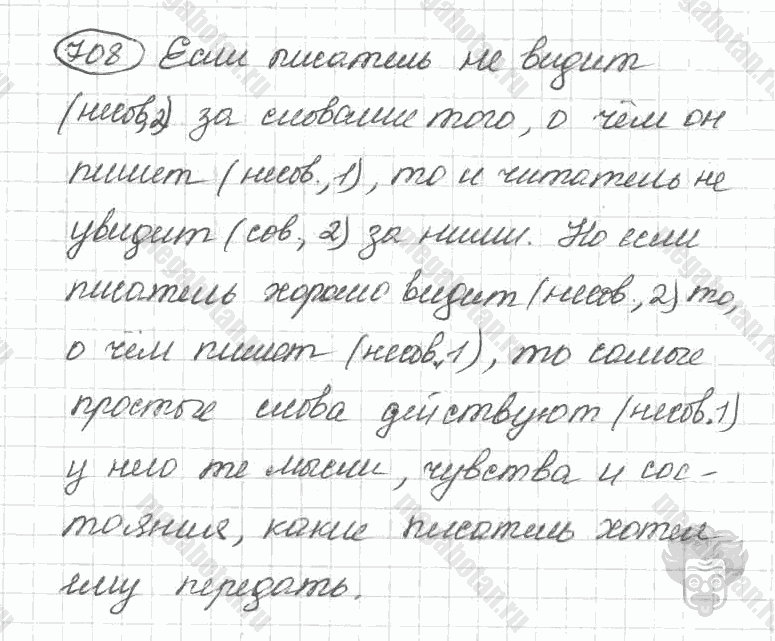 708 Если писатель не видит
(несов,2) за словами того, о чём он
пишет (несов., 1), то и читатель не
увидит (сов., 2) за ними. Но если
писатель хорошо видит (несов., 2) то,
о чём пишет (несов., 1), то самые
простые слова действуют (несов. 1)
у него те мысли, чувства и сос-
тояния, какие писатель хотел
ему передать.
megahotan.ru